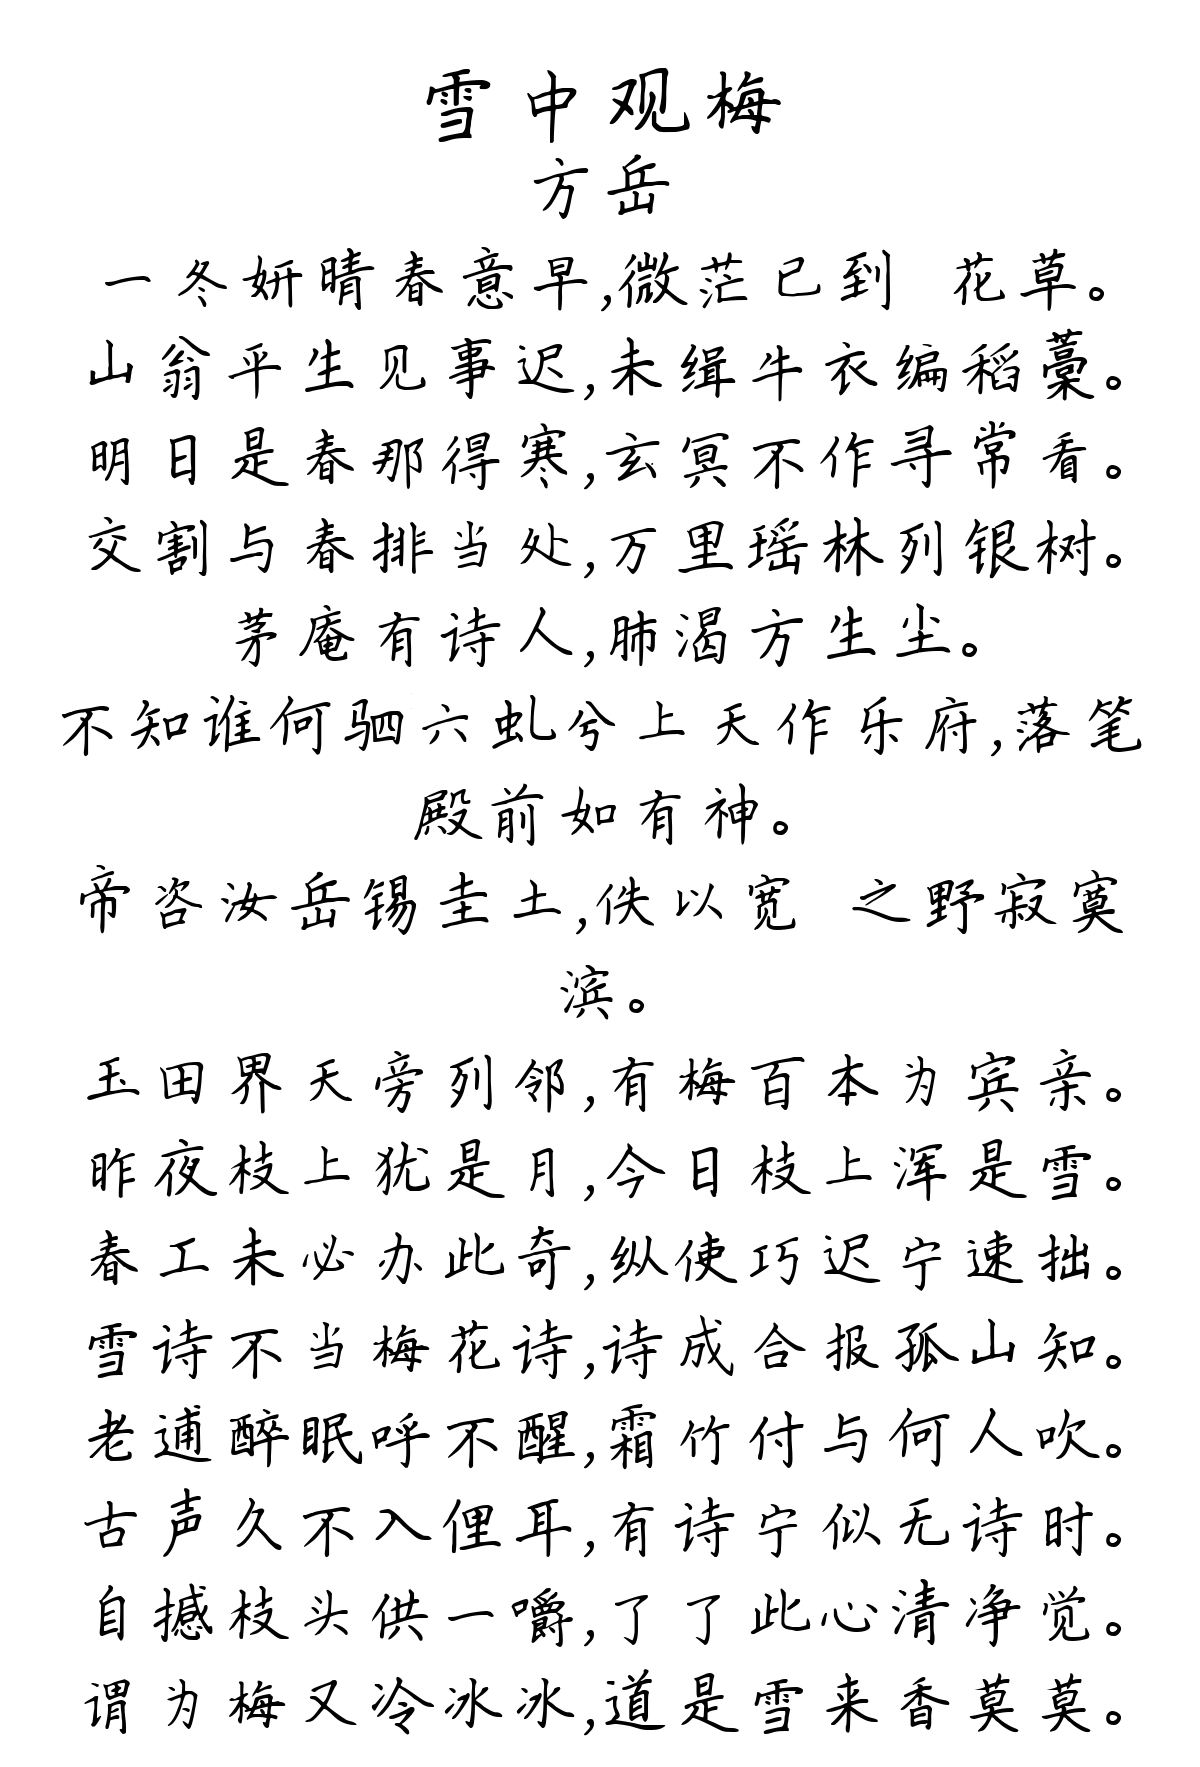 雪中观梅
方岳
一冬妍晴春意早,微茫已到 花草。
山翁平生见事迟,未缉牛衣编稻藁。
明日是春那得寒,玄冥不作寻常看。
交割与春排当处,万里瑶林列银树。
茅庵有诗人,肺渴方生尘。
不知谁何驷六虬兮上天作乐府,落笔
殿前如有神。
帝咨汝岳锡圭土,佚以宽 之野寂寞
滨。
玉田界天旁列邻,有梅百本为宾亲。
昨夜枝上犹是月,今日枝上浑是雪。
春工未必办此奇,纵使巧迟宁速拙。
雪诗不当梅花诗,诗成合报孤山知。
老逋醉眠呼不醒,霜竹付与何人吹。
古声久不入俚耳,有诗宁似无诗时。
自撼枝头供一嚼,了了此心清净觉。
谓为梅又冷冰冰,道是雪来香莫莫。